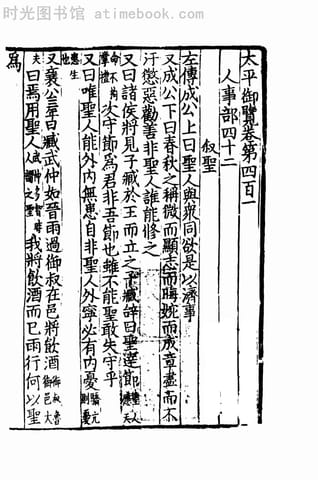 时光图书馆 - www.atimebook.com
太平御覽卷第四百一
人事部四十二
叙聖
左傳成公上曰聖人與衆同欲是以濟事
又成公下曰春秋之稱微而顯志而晦婉而成章盡而不
汙懲惡勸善非聖人誰能修之
又曰諸侯將見子臧於王而立之子臧辭曰聖達節聖人應天
命不拘常禮次守節爲君非吾節也雖不能聖敢失守乎
又曰唯聖人能外内無患自非聖人外寧必有内憂驕亢則憂
患生也
又襄公三年曰臧武仲如晉雨過御叔在邑將飲酒御叔魯御邑大
夫曰焉用聖人武仲多智時人謂之聖我將飲酒而已雨行何以聖
爲